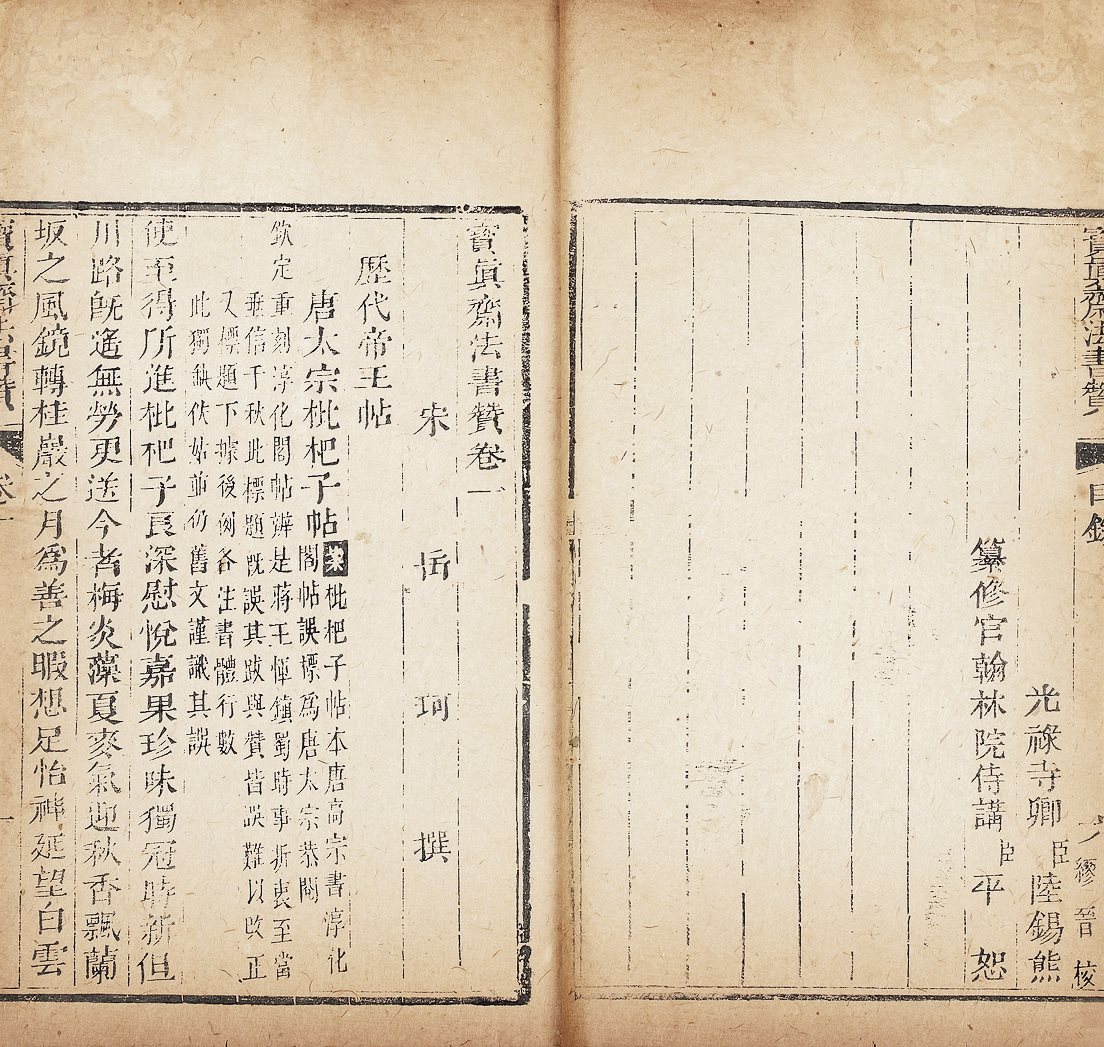 寶眞齋法書贊 目錄
繆晉 校
光祿寺卿臣陸錫熊
纂修官翰林院侍講臣平 恕
寶眞齋法書贊卷一
宋 岳 珂 撰
歷代帝王帖
唐太宗枇杷子帖案枇杷子帖本唐高宗書淳化
閣帖誤標爲唐太宗恭閱
欽定重刻淳化閣帖辨是蔣王惲鎮蜀時事折衷至當
垂信千秋此標題旣誤其跋與贊皆誤難以改正
又標題下據後例各注書體行數
此獨缺佚姑並仍舊文謹識其誤
使至得所進枇杷子良深慰悅嘉果珍味獨冠時新但
川路旣遙無勞更送今者梅炎藻夏麥氣迎秋香飄蘭
坂之風鏡轉桂巖之月爲善之暇想足怡神延望白雲
寶眞齋法書贊 卷一 一